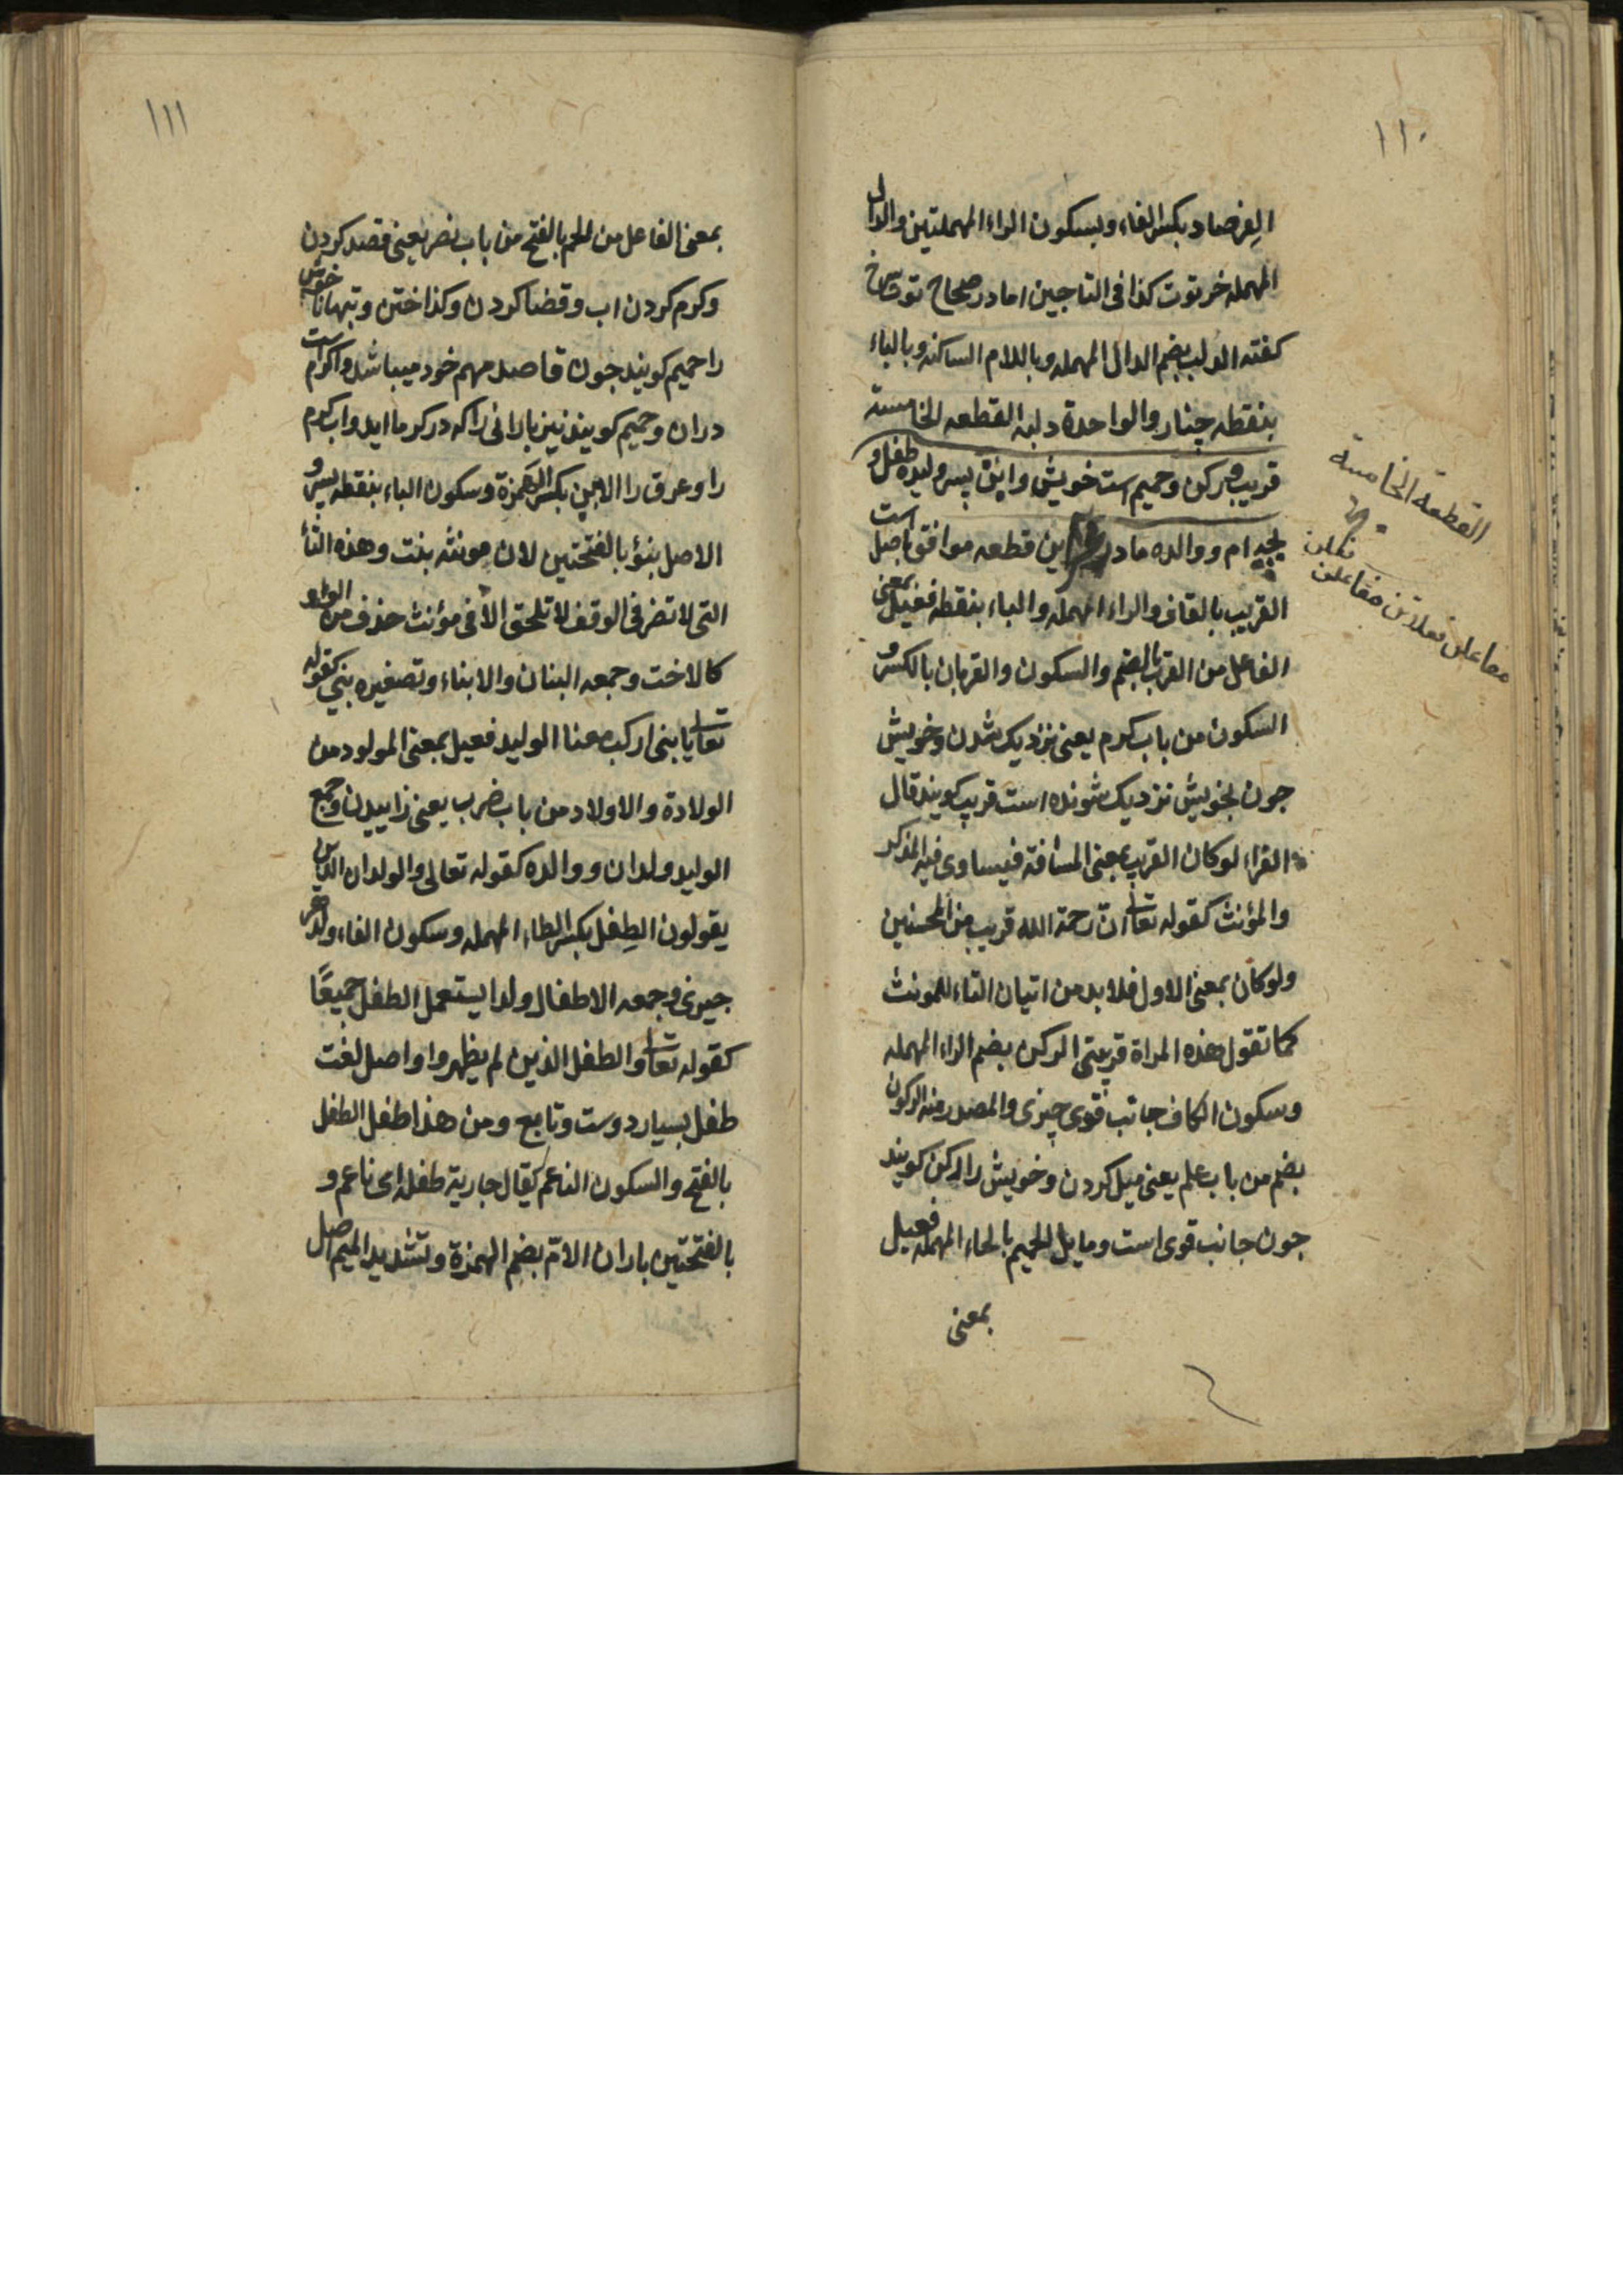 ١١٠
الفرصاد بكسر الفاء وبسكون الراء المهملتين والدال
المهمله خرتوت كذا فى التاجين اما در صحاح توت سرخ
كفته الدلب بضم الدال المهمله وباللام الساكنه وبالباء
بنقطه چنار والواحدة دلبه القطعه الخامسة
قريب و ركن و حميم است خويش وابن پسر وليد و طفل و
ام و والده مادر اين قطعه موافق اصل است
القريب بالقاف والراء المهمله والباء بنقطه فعيل بمعنى
الفاعل من القرب بالضم والسكون والقربان بالكسر و
السكون من باب كرم يعنى نزديك شدن و خويش
جون بخويش نزديك شونده است قريب كويند قال
الفراء لو كان القريب بمعنى المسافة فيساوى فيه المذكر
والمؤنث كقوله تعالى ان رحمة الله قريب من المحسنين
ولو كان بمعنى الاول فلا بد من اتيان التاء للمونث
كما تقول هذه المراة قريبتى الركن بضم الراء المهمله
وسكون الكاف جانب قوى چيزى والمصدر منه الركون
بضم من باب علم يعنى ميل كردن و خويش را ركن كويند
جون جانب قوى است ومايل الحميم بالحاء المهمله فعيل
بمعنى
القطعة الخامسة
مفاعلن فعلاتن مفاعلن فعلن
١١١
بمعنى الفاعل من الحم بالفتح من باب نصر يعنى قصد كردن
وكرم كردن اب وقضا كردن وكداختن وتبها نا خويش
را حميم كويند جون قاصد مهم خود ميباشد واكرام است
دران وحميم كويند نيز بارانى را كه در كرما ايد واب كرم
را وعرق را الابن بكسر الهمزة وسكون الباء بنقطه پسر و
الاصل بنو بالفتحتين لان مونثه بنت وهذه التاء
التى لا تضر فى الوقف لا تلحق الا فى مؤنث حذف منه الواو
كالاخت وجمعه البنان والابناء وتصغيره بنى كقوله
تعالى يا بنى اركب معنا الوليد فعيل بمعنى المولود من
الولادة والاولاد من باب ضرب يعنى زاييدن وجمع
الوليد ولدان و والده كقوله تعالى والولدان الذين
يقولون الطفل بكسر الطاء المهمله وسكون الفاء ولد هر
چيزى وجمعه الاطفال ولدا يستعمل الطفل جميعًا
كقوله تعالى والطفل الذين لم يظهروا واصل لغت
طفل بسيار دوست وتابع ومن هذا طفل الطفل
بالفتح والسكون الناعم يقال جارية طفلة اى ناعم و
بالفتحتين باران الام بضم الهمزة وتشديد الميم اصل